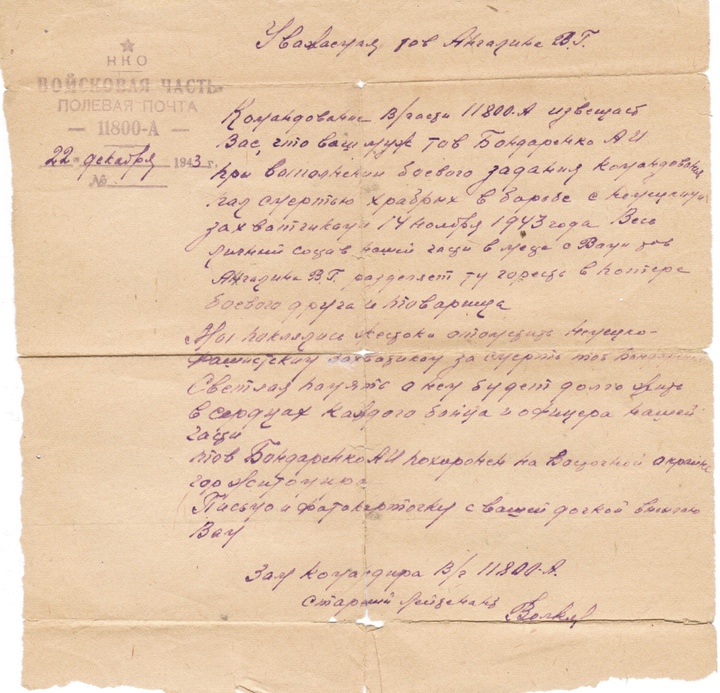 Уважаемая тов Ангалина В.Г.
НКО
ВОЙСКОВАЯ ЧАСТЬ
ПОЛЕВАЯ ПОЧТА
— 11800-А —
22 декабря 1943 г.
№
Командование В/части 11800-А извещает
Вас, что ваш муж тов Бондаренко АИ
при выполнении боевого задания командования
пал смертью храбрых в борьбе с немецкими
захватчиками 14 ноября 1943 года Весь
личный состав нашей части в месте с Вами тов
Ангалина В.Г. разделяет ту горесть в потере
боевого друга и товарища
Мы поклялись жестоко отомстить немецко-
фашистским захватчикам за смерть тов
Светлая память о нем будет долго жить
в сердцах каждого бойца и офицера нашей
части
тов Бондаренко АИ похоронен на Восточной окраине
гор Житомира
Письмо и фотокарточку с вашей дочкой
Вам
Зам командира В/ч 11800-А.
старший лейтенант Волков